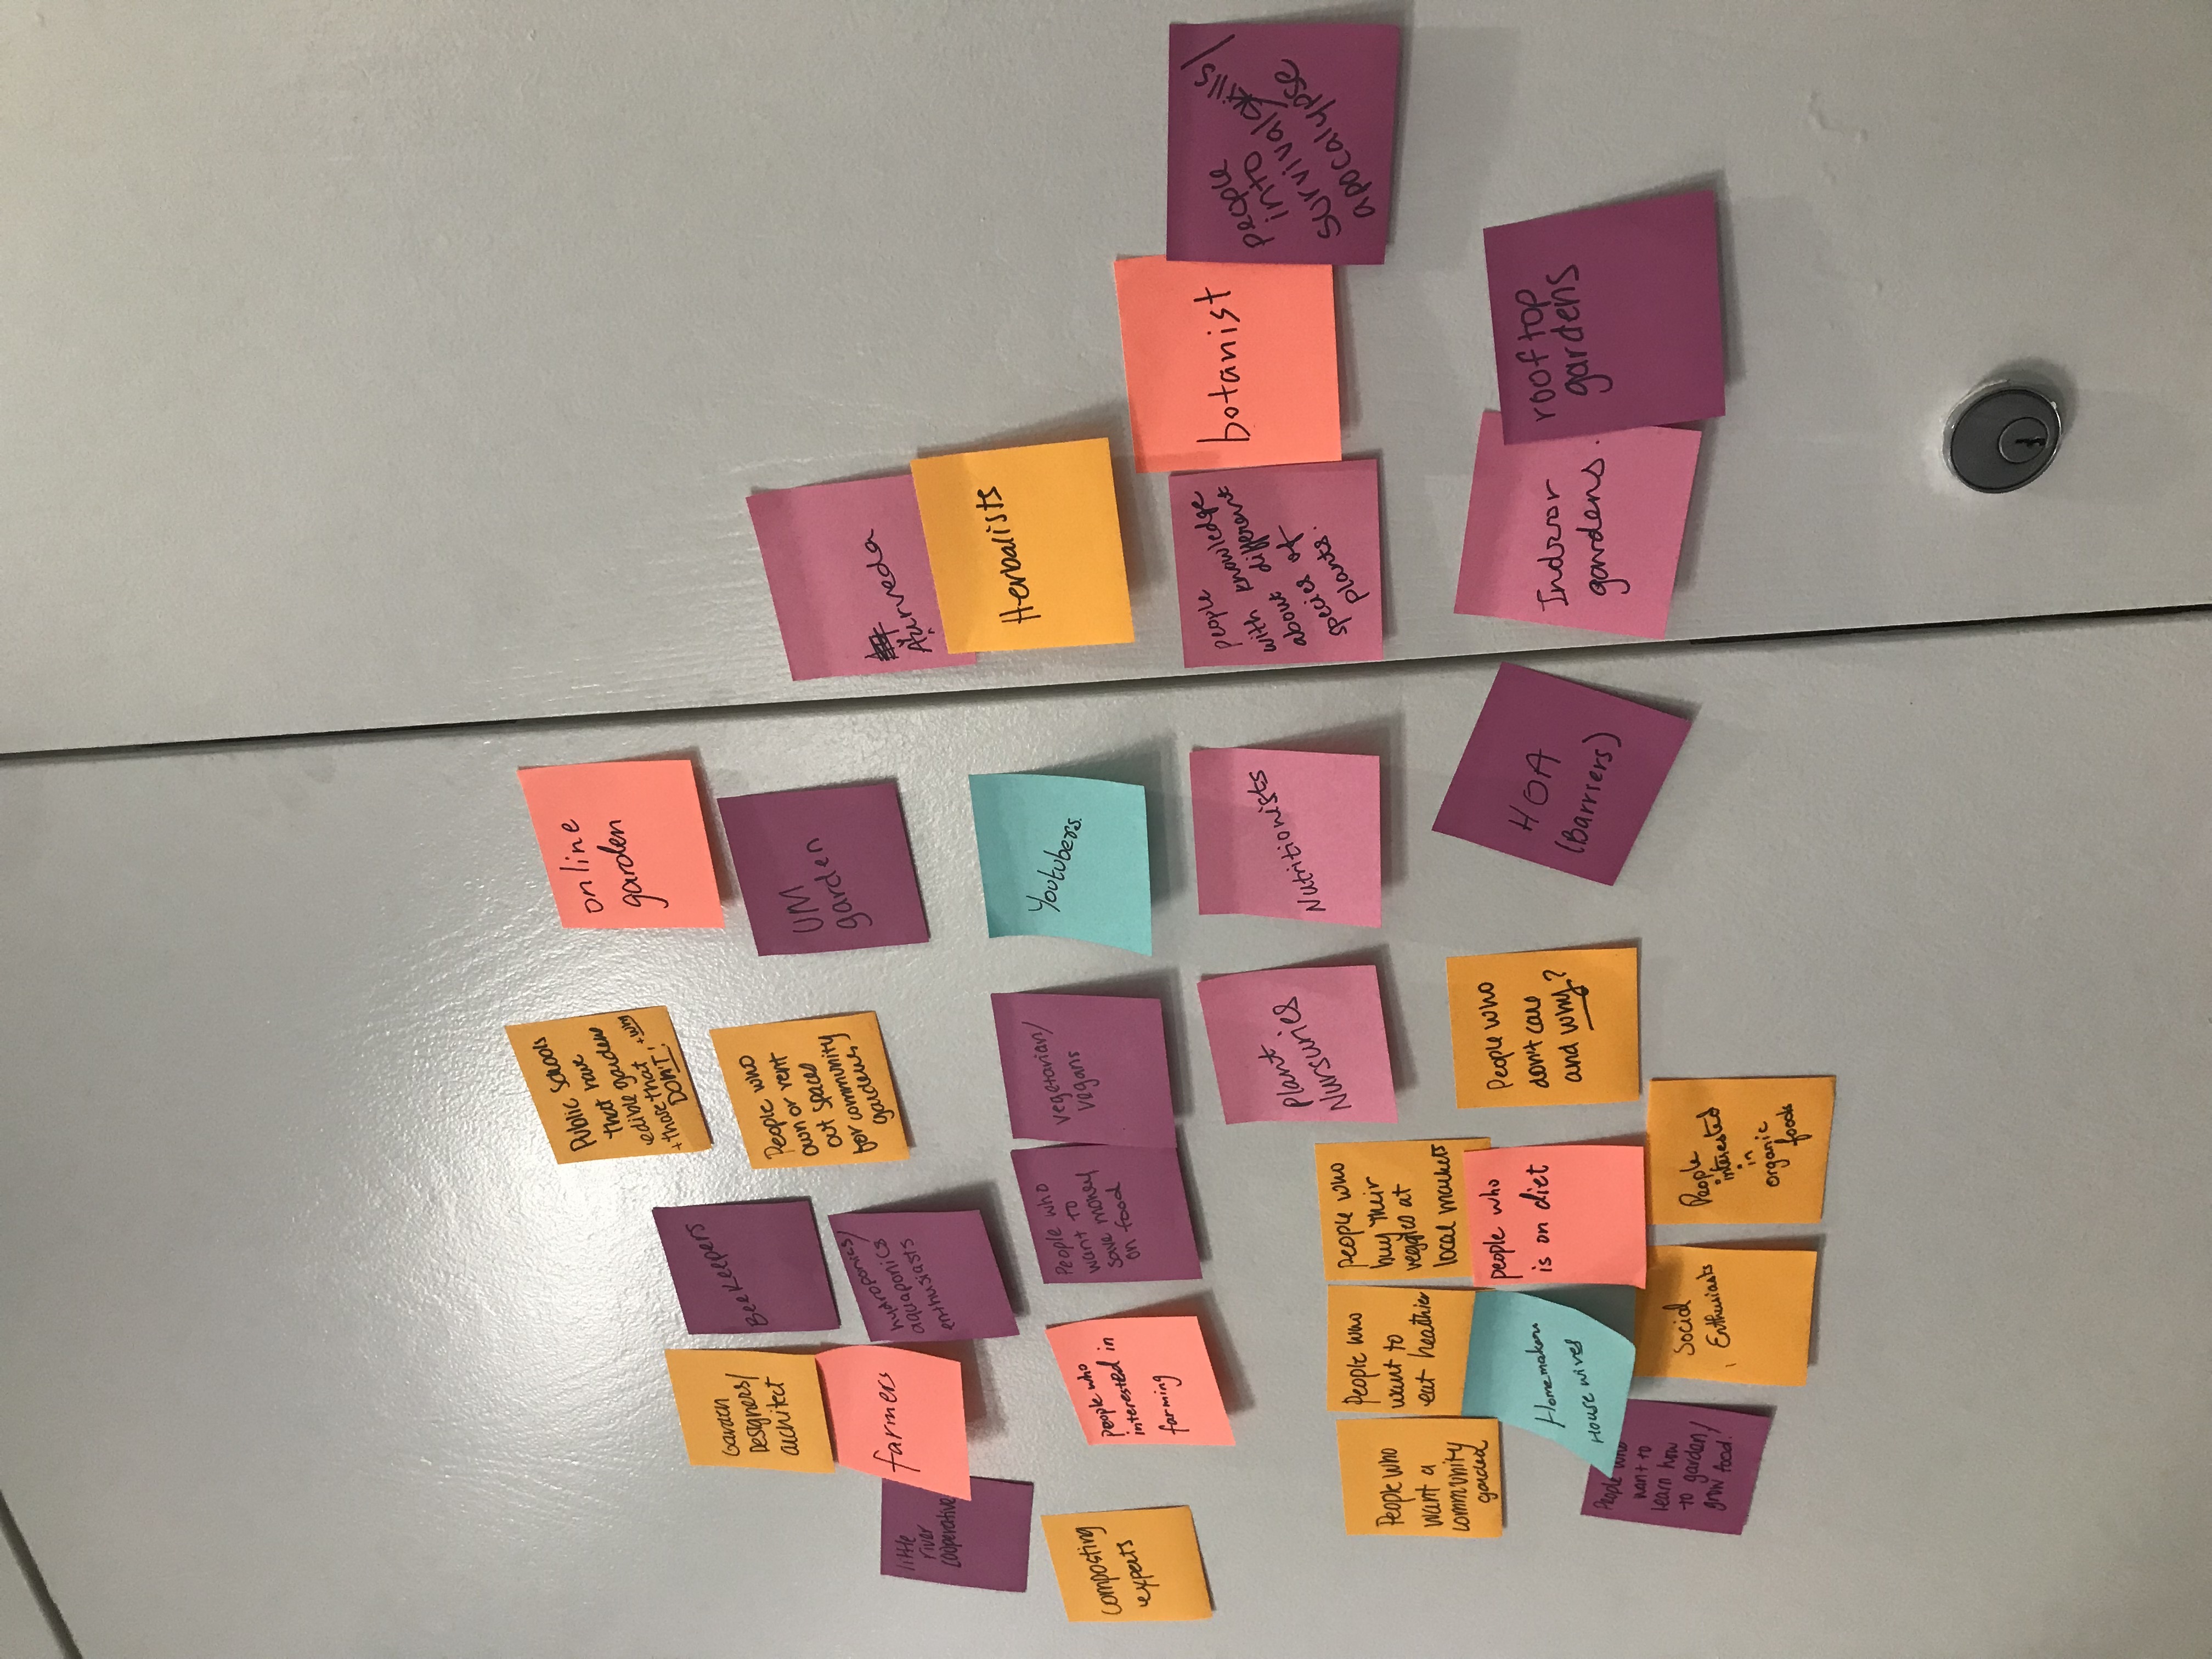 Public Schools
that have
edible gardens
+ those that + why
DON'T!
online
garden
Garden
Designers/
architect
BeeKeepers
People who
own or rent
out spaces
for community
gardens
UM
garden
little
river
cooperative
farmers
hydroponics/
aquaponics
enthusiasts
Ayurveda
Herbalists
composting
experts
people who
interested in
farming
People who
want to
save money
on food
vegetarian/
vegans
Youtubers.
Plant
Nursuries
Nutritionists
people
with knowledge
about different
species of
plants.
botanist
people
into
survival skills/
apocalypse
People who
want a
community
garden
People who
want to
eat healthier
People who
buy their
veggies at
local markets
Homemakers
House wives
people who
is on diet
People who
don't care
and why?
HOA
(Barriers)
Indoor
gardens.
rooftop
gardens
People who
want to
learn how
to garden/
grow food.
Social
Enthusiasts
People
interested
in
organic
foods